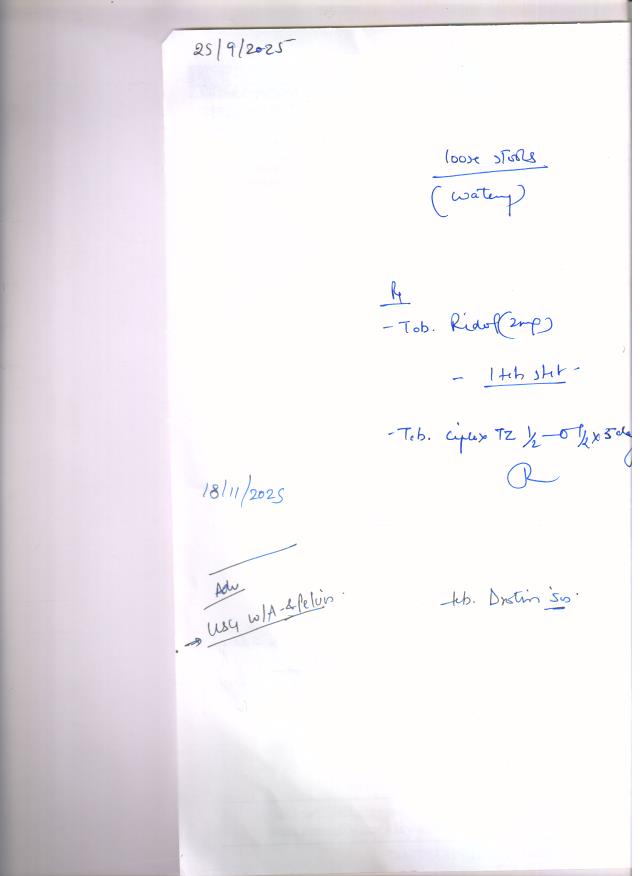 25/9/2025
loose stools
(watery)
Rx
- Tab. Ridol (2mg)
- 1 tab stat -
- Tab. Ciplox TZ 1/2—0—1/2 x 5 day
18/11/2025
Adv
→ USG W/A & Pelvis.
tab. Drotin